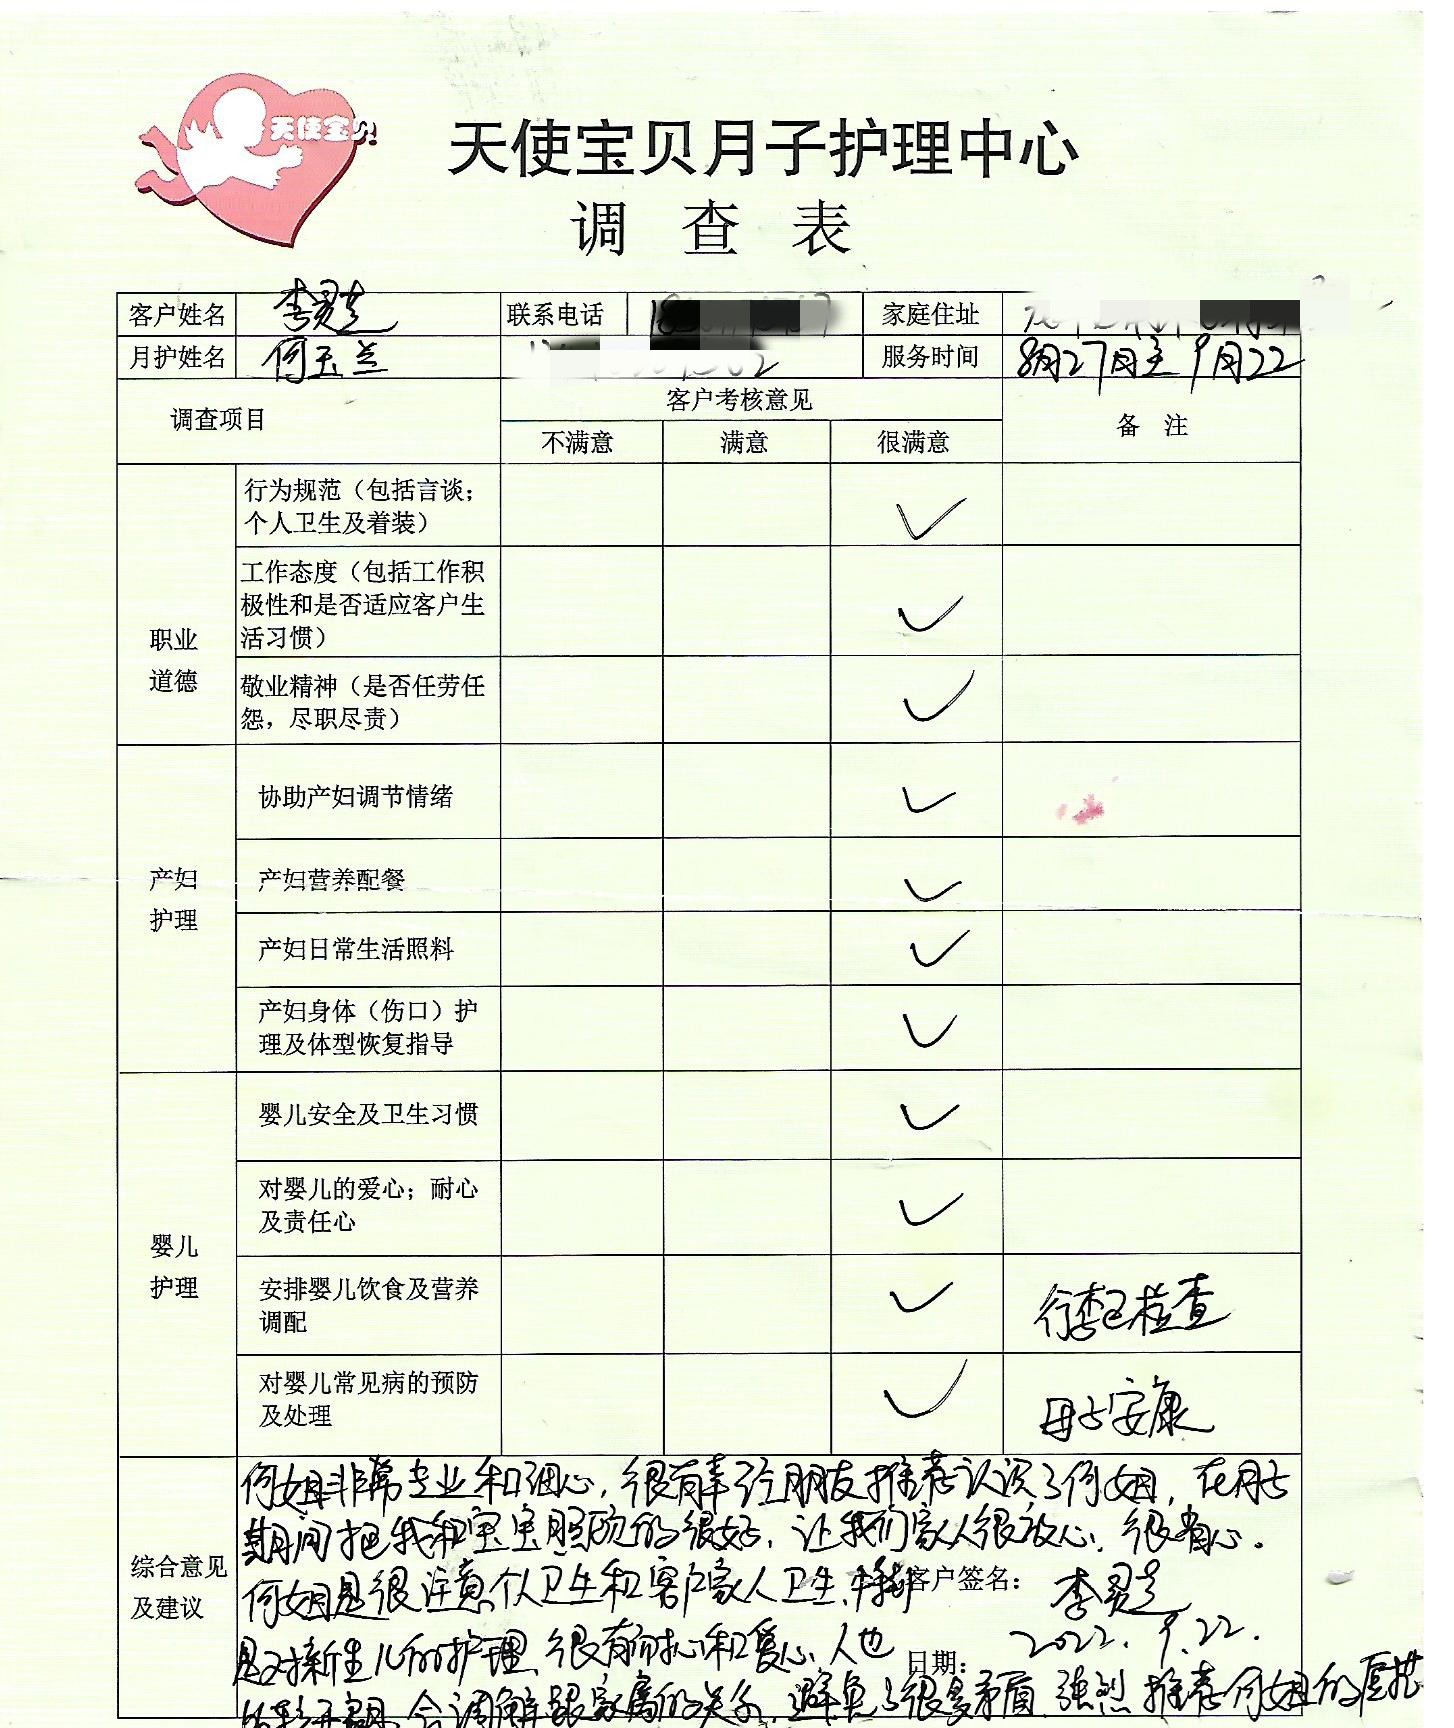 天使宝贝
天使宝贝月子护理中心
调 查 表
客户姓名 李灵芝 联系电话 家庭住址
月护姓名 何玉兰 服务时间 8月27月至9月22
调查项目 客户考核意见 备 注
不满意 满意 很满意
职业
道德
行为规范（包括言谈；
个人卫生及着装）
工作态度（包括工作积
极性和是否适应客户生
活习惯）
敬业精神（是否任劳任
怨，尽职尽责）
产妇
护理
协助产妇调节情绪
产妇营养配餐
产妇日常生活照料
产妇身体（伤口）护
理及体型恢复指导
婴儿
护理
婴儿安全及卫生习惯
对婴儿的爱心；耐心
及责任心
安排婴儿饮食及营养
调配
行李已检查
对婴儿常见病的预防
及处理
母子安康
综合意见
及建议
何姐非常专业和细心，很有幸经朋友推荐认识了何姐，在月子
期间把我和宝宝照顾的很好，让我们家人很放心，很省心。
何姐是很注意个人卫生和客户家人卫生，特别
客户签名： 李灵芝
是对新生儿的护理，很有耐心和爱心，人也
日期： 2022.9.22.
会调解跟家属的关系，避免了很多矛盾，强烈推荐何姐的